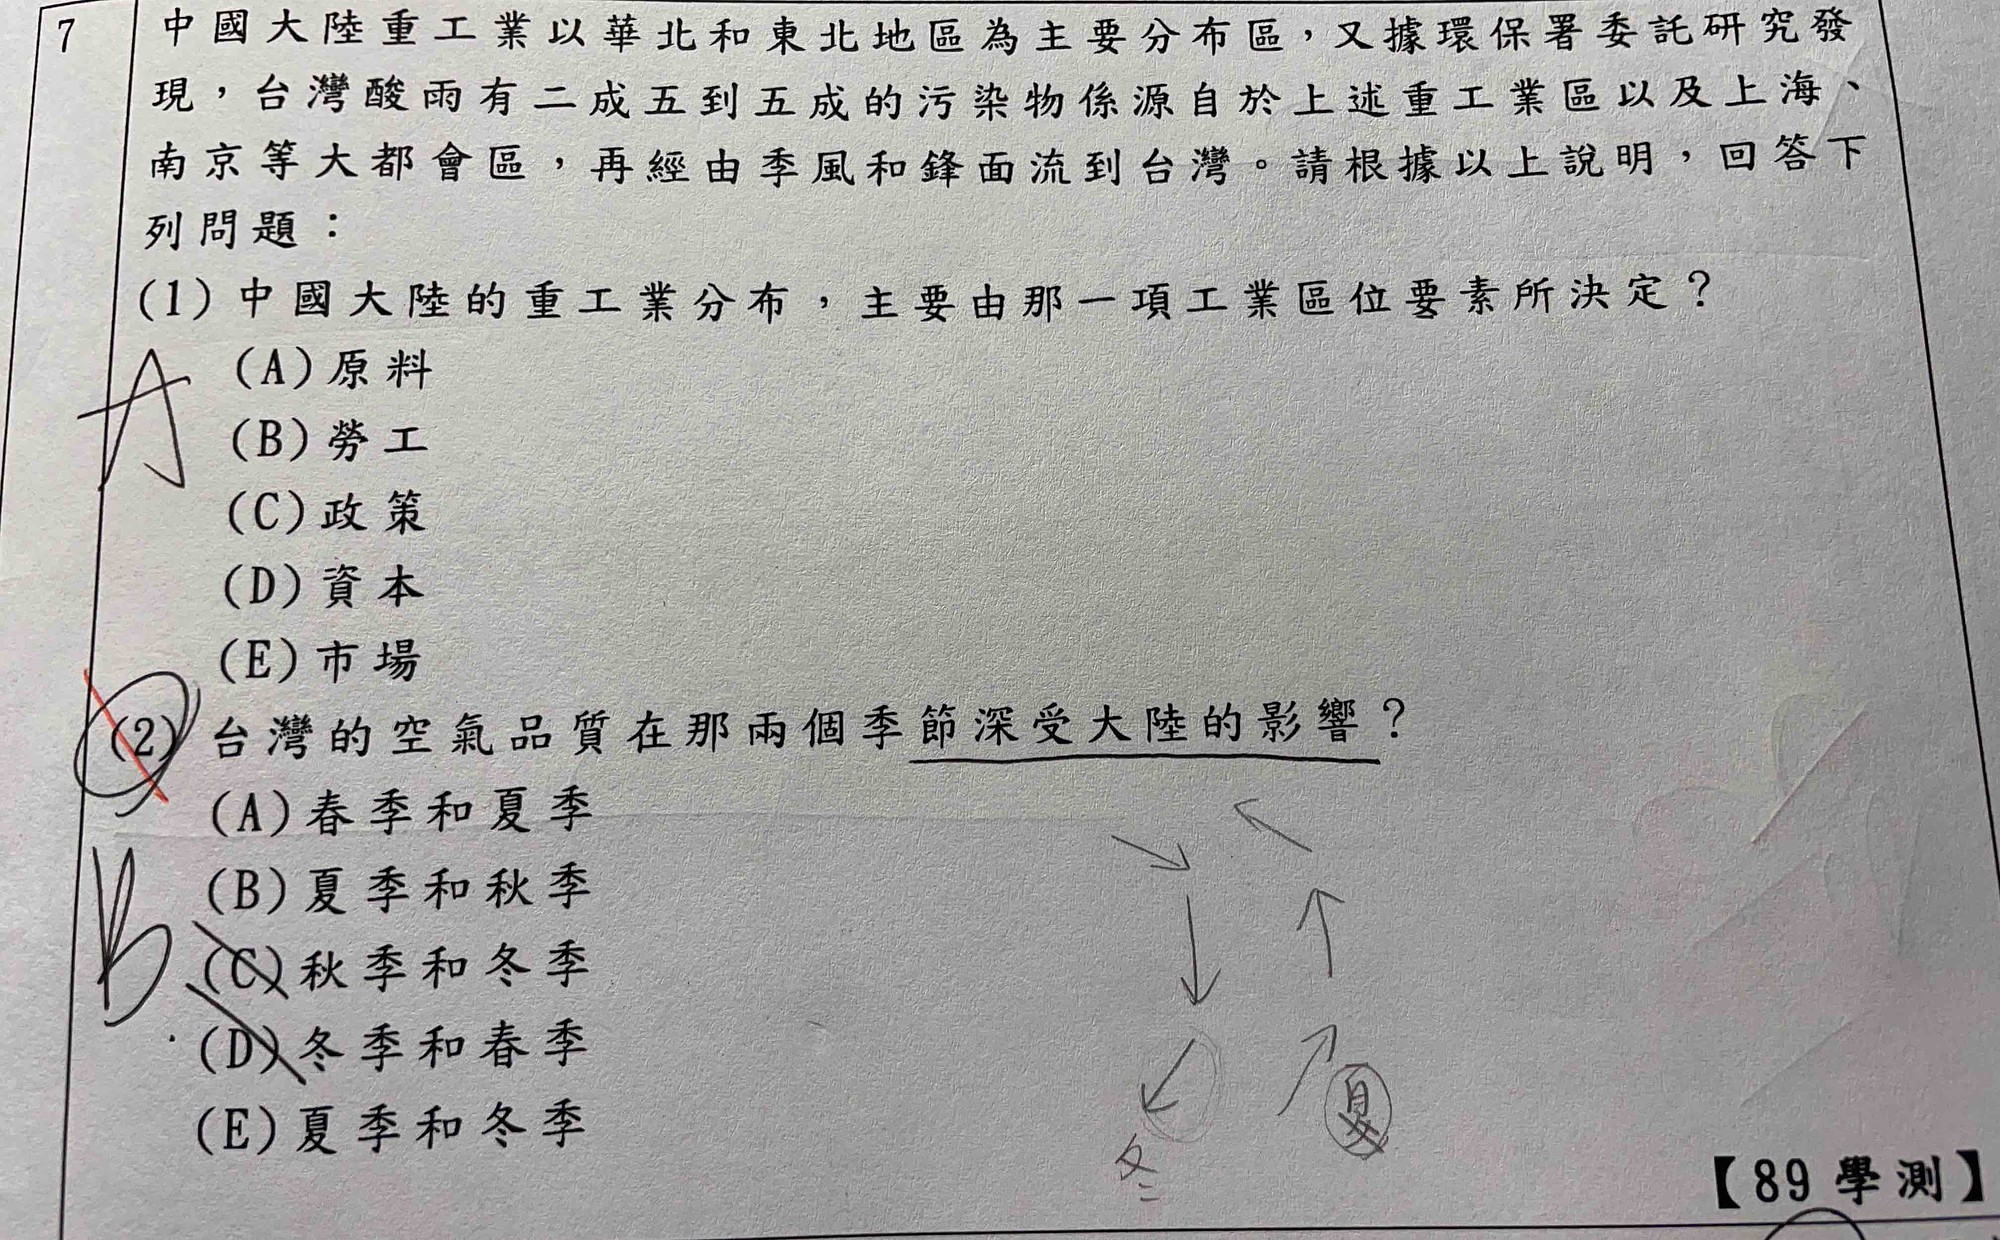 7 中國大陸重工業以華北和東北地區為主要分布區，又據環保署委託研究發
現，台灣酸雨有二成五到五成的污染物係源自於上述重工業區以及上海、
南京等大都會區，再經由季風和鋒面流到台灣。請根據以上說明，回答下
列問題：
(1)中國大陸的重工業分布，主要由那一項工業區位要素所決定？
A
(A)原料
(B)勞工
(C)政策
(D)資本
(E)市場
(2)台灣的空氣品質在那兩個季節深受大陸的影響？
(A)春季和夏季
B
(B)夏季和秋季
(C)秋季和冬季
(D)冬季和春季
(E)夏季和冬季
夏
冬
【89學測】